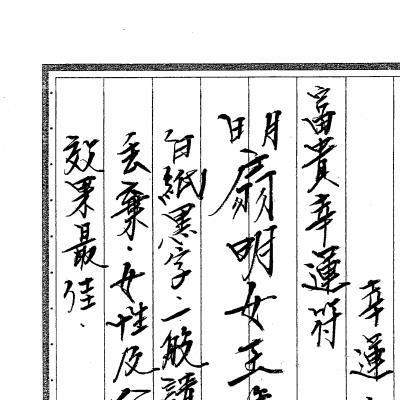 幸運
富貴幸運符
明扇明女王
白紙黑字．一般請
丟棄．女性及
效果最佳．